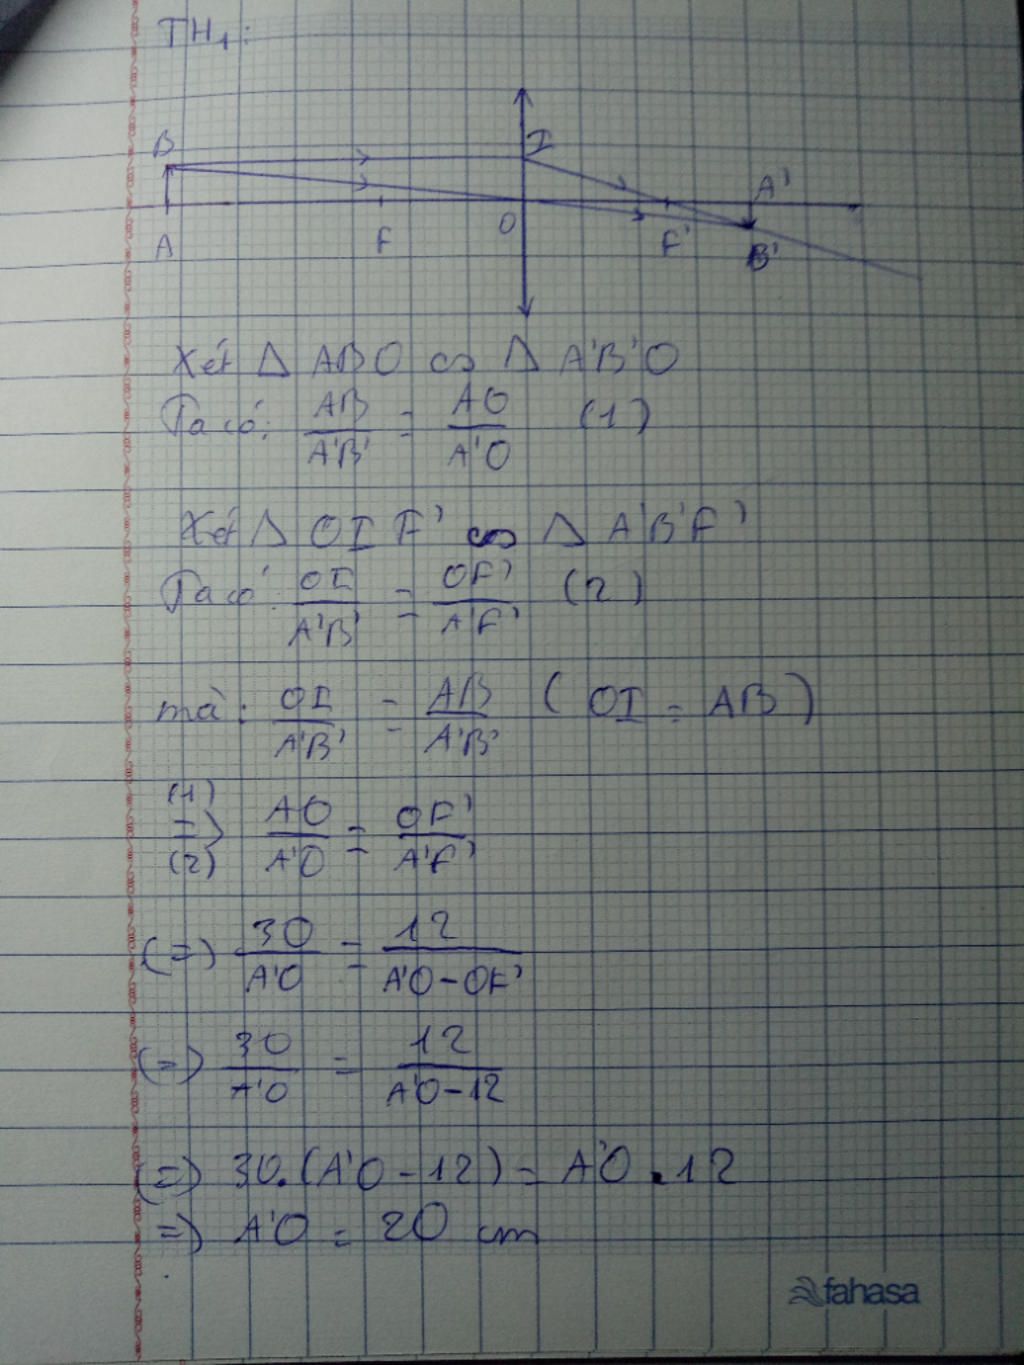 TH₁:
B I A'
A F O F' B'
Xét Δ ABO ∽ Δ A'B'O
Ta có: AB/A'B' = AO/A'O (1)
Xét Δ OIF' ∽ Δ A'B'F'
Ta có: OI/A'B' = OF'/A'F' (2)
mà: OI/A'B' = AB/A'B' (OI = AB)
(1)
=> AO/A'O = OF'/A'F'
(2)
(=) 30/A'O = 12/A'O-OF'
(=) 30/A'O = 12/A'O-12
(=) 30.(A'O-12) = A'O.12
=) A'O = 20 cm
fahasa